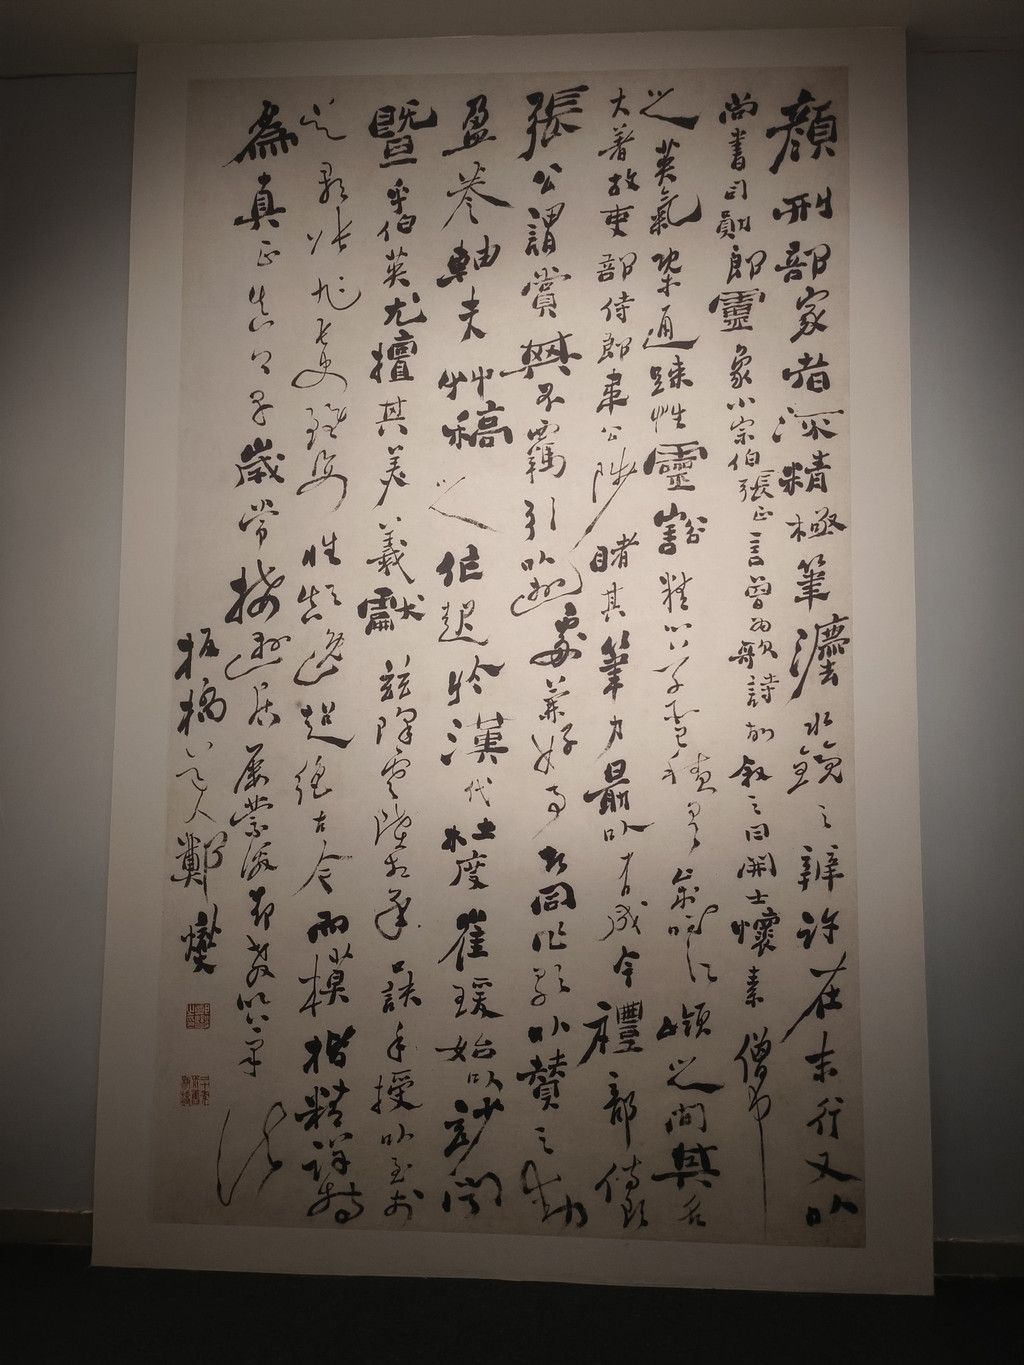 顏刑部家者流精極筆灋水鏡之辨許在末行又以
尚書司勛郎靈象小宗伯張正言曾為歌詩故敘之曰開士懷素僧中
之英氣槩通疎性靈豁精心草聖積有歲時江嶺之間其名
大著故吏部侍郎韋公陟睹其筆力最以有成今禮部侍郎
張公謂賞其不羈引以遊處兼好事者同作歌以贊之動
盈卷軸夫艸稿之作起於漢代杜度崔瑗始以妙聞
暨乎伯英尤擅其美羲獻茲降虞陸相承口訣手授以至於
吳郡張旭長史雖姿性顛逸超絕古今而模楷精詳特
為真正真卿早歲常接遊居屢蒙激昂教以筆法
板橋道人鄭燮